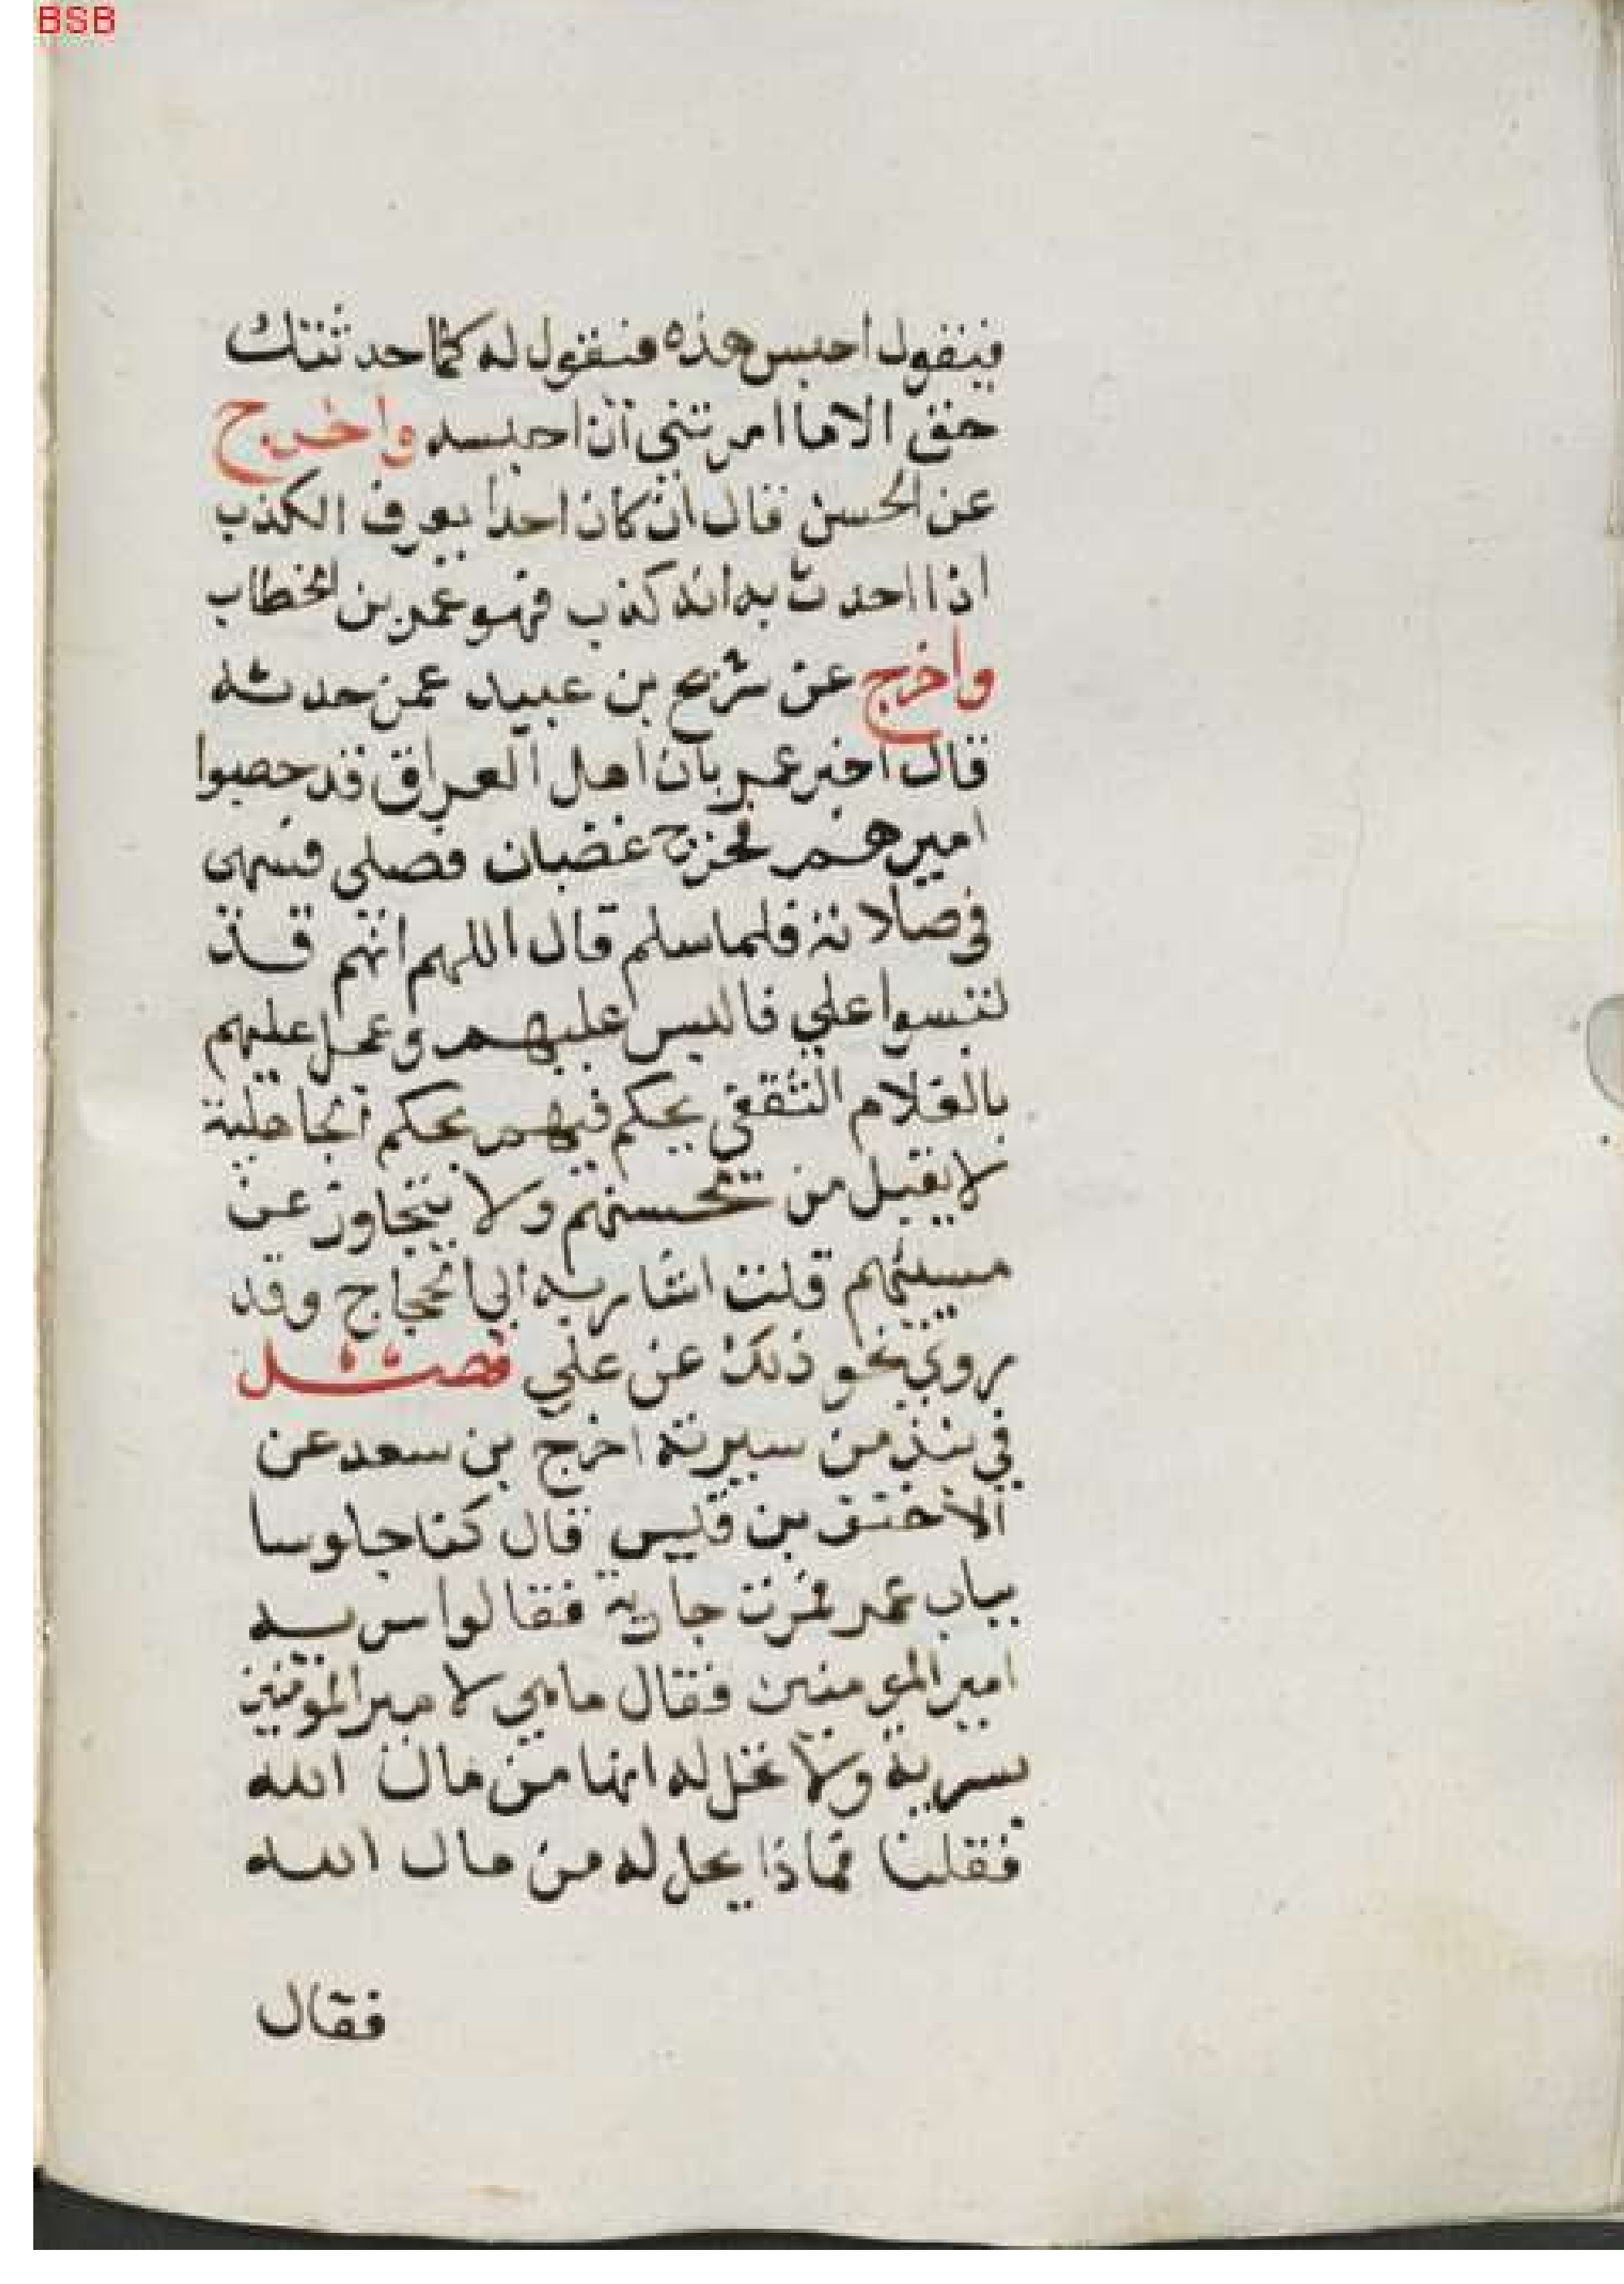 BSB
فيقول احبس هذه فيقول له كلما حدثتك
حق الا ما امرتني ان احبسه واخرج
عن الحسن قال ان كان احدا يعرف الكذب
اذا احدث به انه كذب فهو عمر بن الخطاب
واخرج عن شريح بن عبيد عمن حدثه
قال اخبر عمر بان اهل العراق قد حصبوا
اميرهم فخرج غضبان فصلى فسهى
في صلاته فلما سلم قال اللهم انهم قد
لبسوا علي فالبس عليهم وعجل عليهم
بالغلام الثقفي يحكم فيهم بحكم الجاهلية
لا يقبل من محسنهم ولا يتجاوز عن
مسيئهم قلت اشار به الى الحجاج وقد
روي نحو ذلك عن علي فصل
في نبذ من سيرته اخرج بن سعد عن
الاحنف بن قيس قال كنا جلوسا
بباب عمر فمرت جارية فقالوا سرية
امير المومنين فقال ما هي لامير المومنين
بسرية ولا تحل له انها من مال الله
فقلنا فماذا يحل له من مال الله
فقال